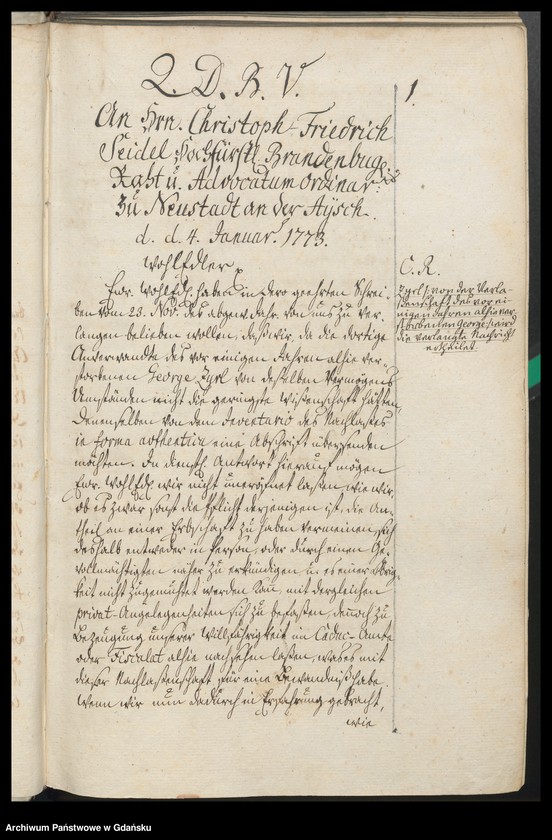 Q. D. B. V.
1.
An Hrn. Christoph Friedrich
Seidel Hochfürstl. Brandenbug.
Raht u. Advocatum Ordinar:
zu Neustadt an der Aysch.
d. d. 4. Januar. 1773.
Wohl Edler p
C. R.
Ewr. WohlEdl. haben in Dero geehrten Schrei-
ben vom 23. Nov. des abgew. Jahr. von uns zu ver-
langen belieben wollen, daß wir, da die dortige
Anverwandte des vor einigen Jahren alhie ver-
storbenen George Zyrl von desselben Vermögens
Umständen nicht die geringste Wißenschaft hätten,
Denenselben von dem Inventario des Nachlaßes
in forma authentica eine Abschrift übersenden
möchten. In dienstl. Antwort hierauf mögen
Ewr. WohlEdl. wir nicht uneröfnet laßen, wie wir,
ob es zwar sonst die Pflicht derjenigen ist, die An-
theil an einer Erbschaft zu haben vermeinen, sich
deshalb entweder in Person, oder durch einen Ge-
vollmächtigten näher zu erkundigen u. es einer Obrig-
keit nicht zugemuhtet werden kan, mit dergleichen
privat-Angelegenheiten sich zu befaßen, dennoch zu
Bezeugung unserer Willfährigkeit im Caduc-Amte
oder Fiscalat alhie nachsehen laßen, was es mit
dieser Nachlaßenschaft für eine Bewandniß habe.
Wenn wir nun dadurch in Erfahrung gebracht,
wie
von der Verla-
ßenschaft des vor ei-
nigen Jahren alhie ver-
storbenen George
die verlangte Nachricht
ertheilet.
Archiwum Państwowe w Gdańsku